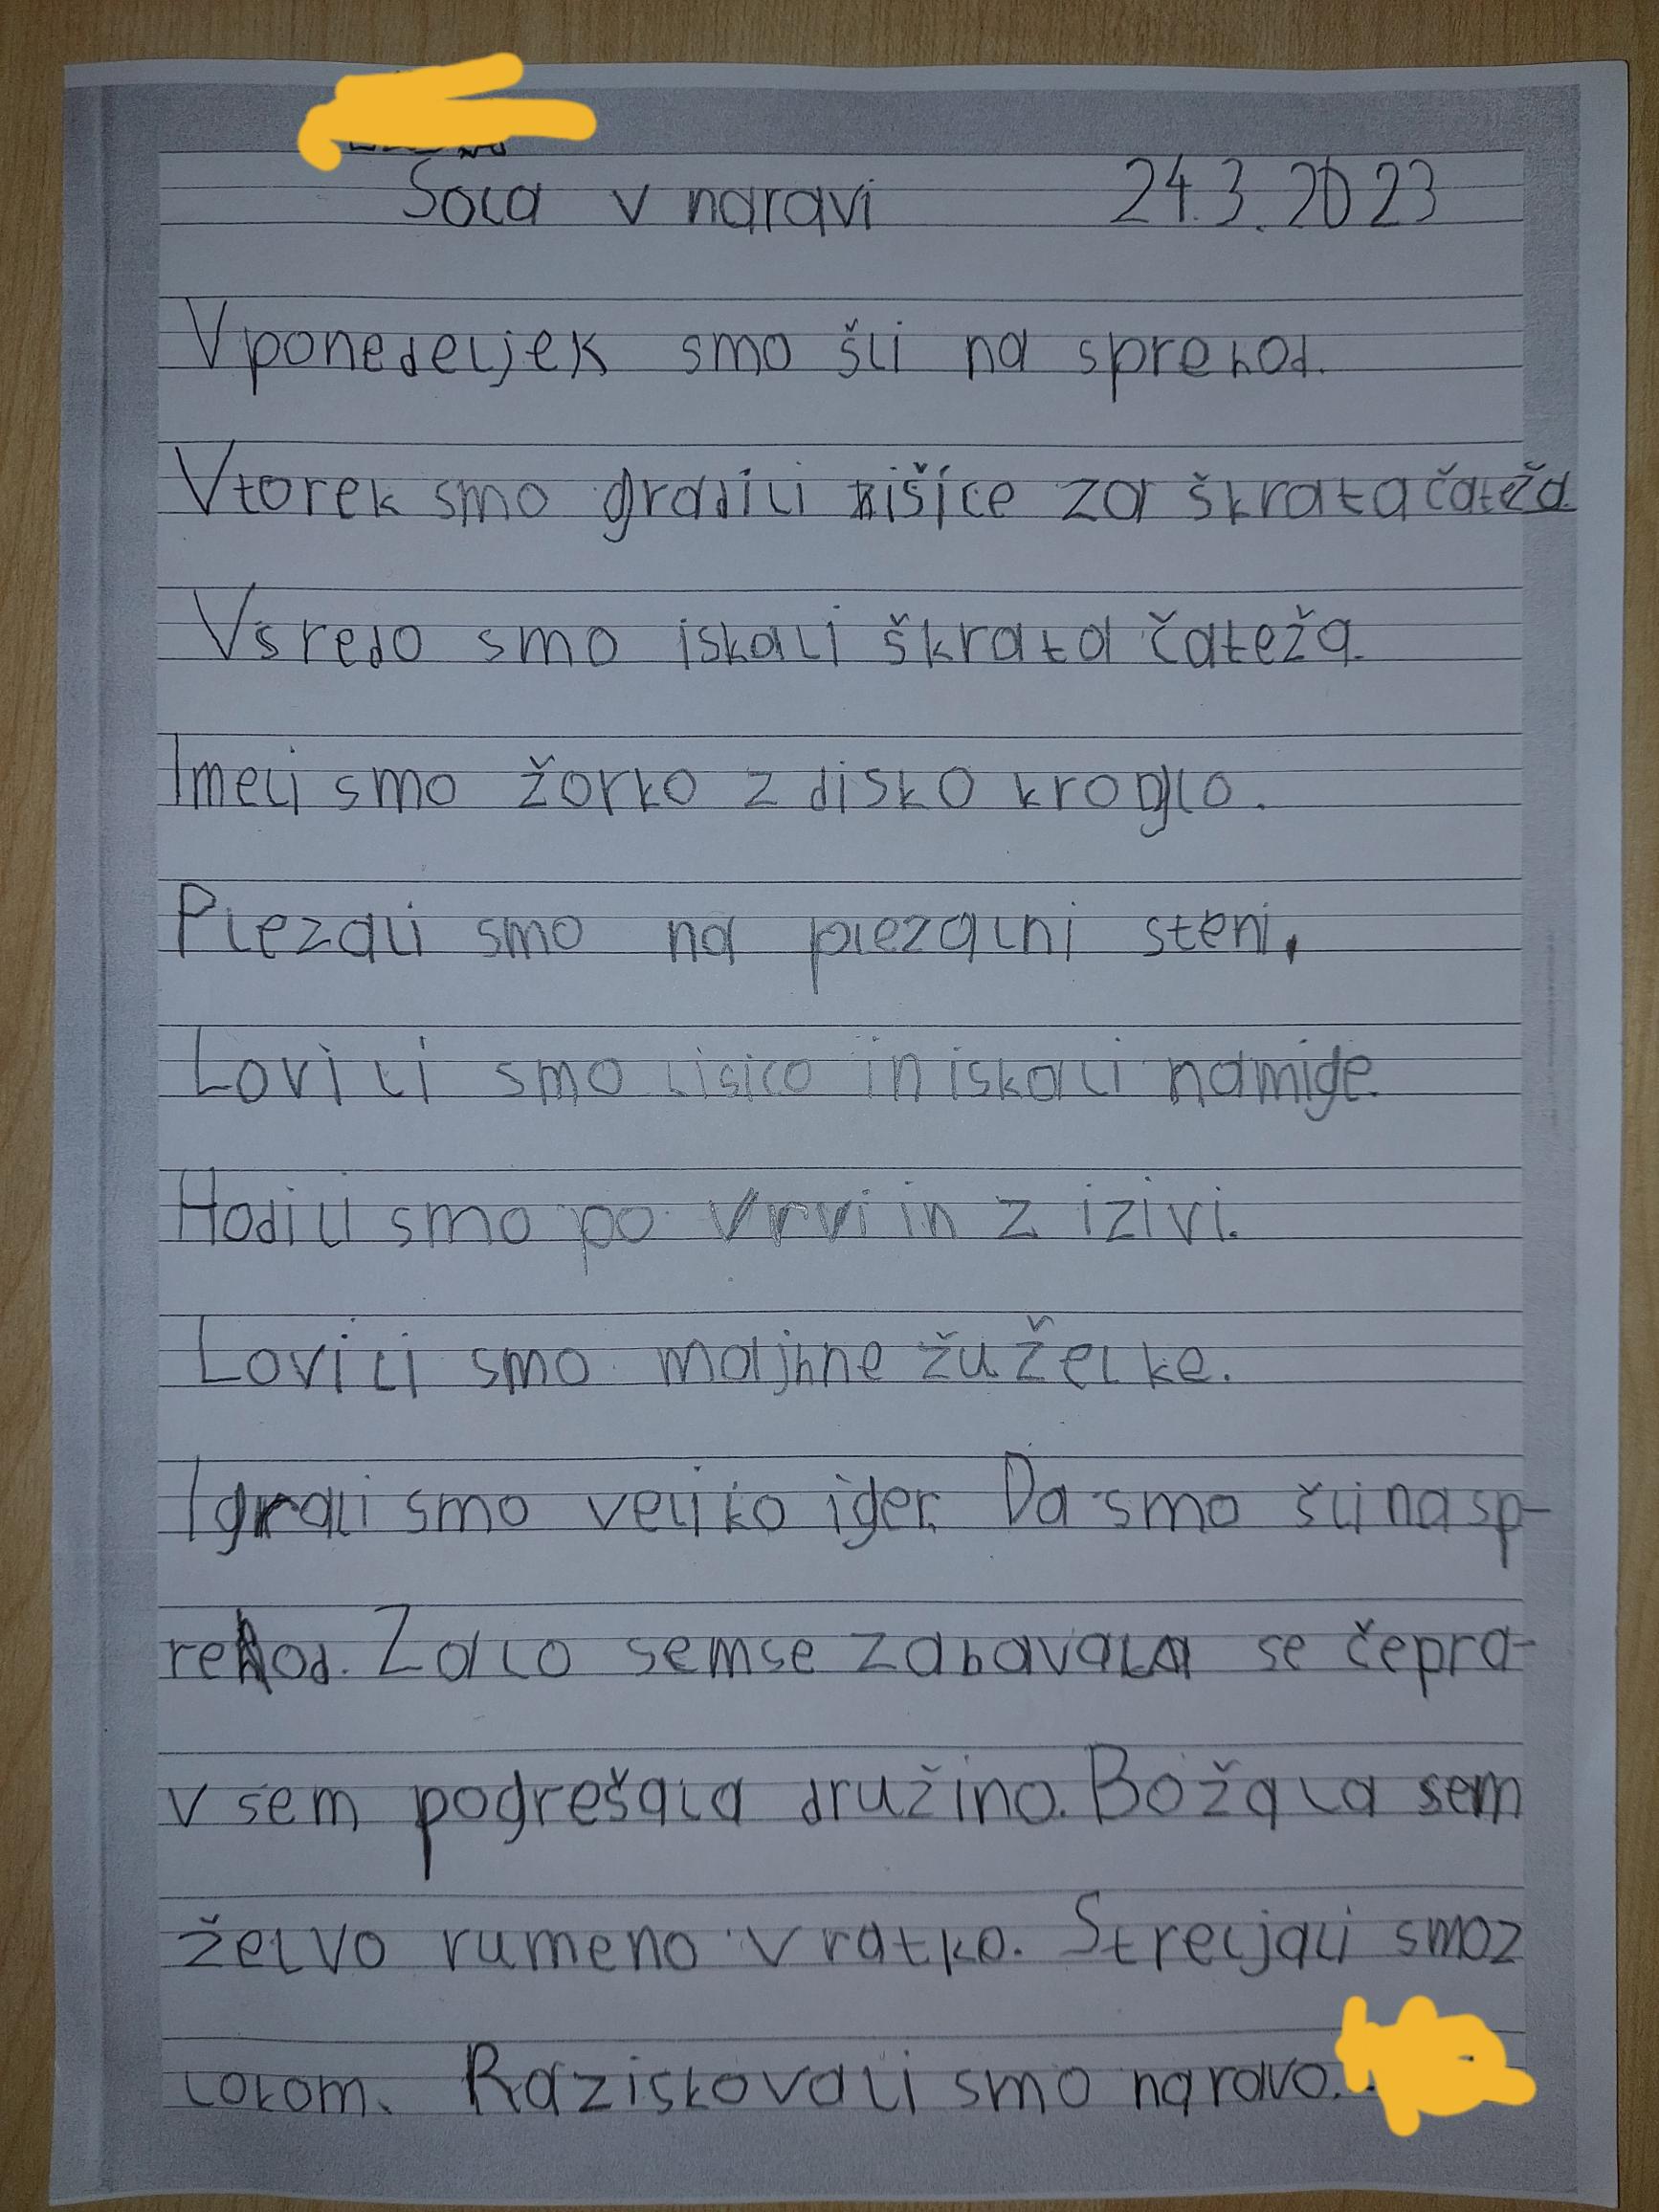 Šola v naravi 24.3.2023
V ponedeljek smo šli na sprehod.
V torek smo gradili hišice za škrata čateža.
V sredo smo iskali škrata čateža.
Imeli smo žorko z disko kroglo.
Plezali smo na plezalni steni.
Lovili smo lisico in iskali namige.
Hodili smo po vrvi in z izivi.
Lovili smo majhne žuželke.
Igrali smo veliko iger. Da smo šli na sp-
rehod. Zalo sem se zabavala se čepra-
v sem pogrešala družino. Božala sem
želvo rumeno vratko. Streljali smo z
lokom. Raziskovali smo naravo.